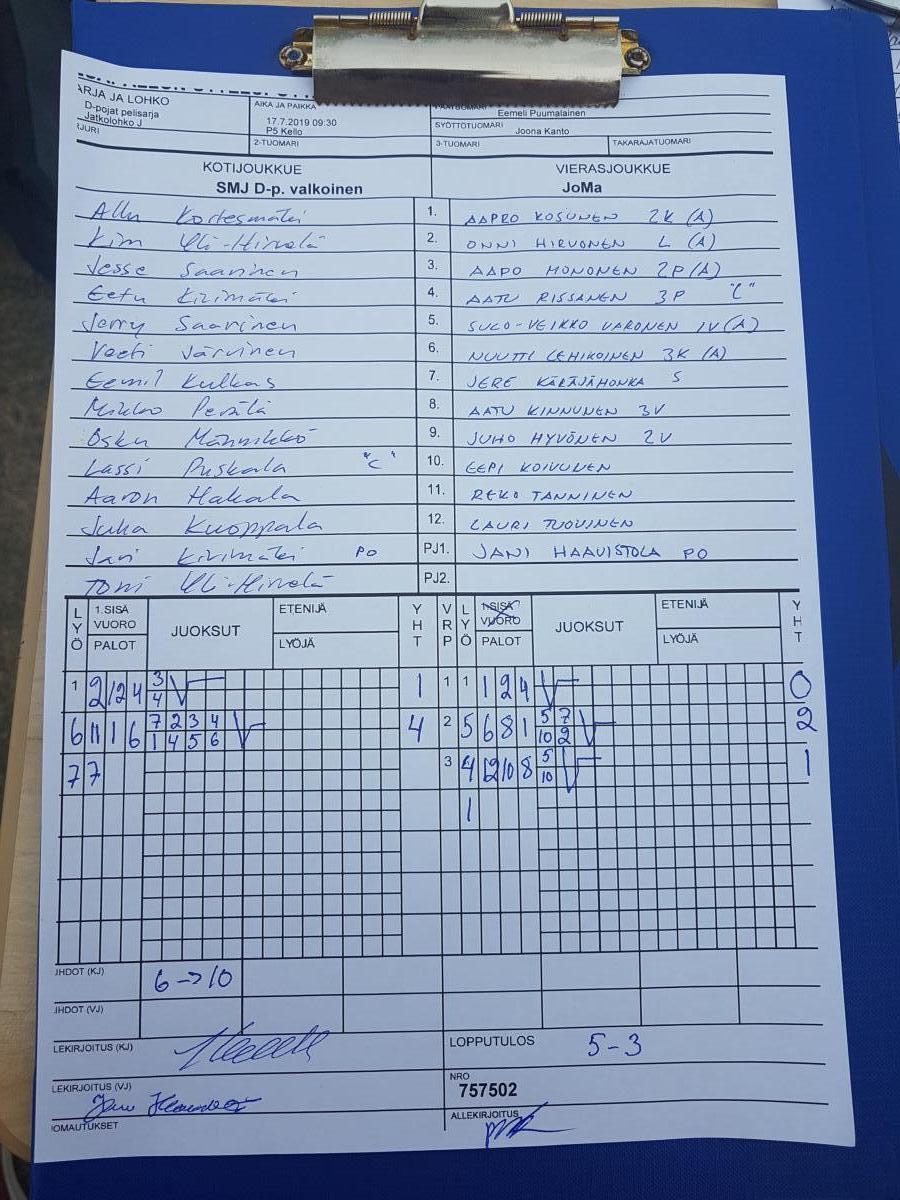 ARJA JA LOHKO
D-pojat pelisarja
Jatkolohko J
AIKA JA PAIKKA
17.7.2019 09:30
P5 Kello
Eemeli Puumalainen
SYÖTTÖTUOMARI
Joona Kanto
JURI
2-TUOMARI
3-TUOMARI
TAKARAJATUOMARI
KOTIJOUKKUE
SMJ D-p. valkoinen
VIERASJOUKKUE
JoMa
Allu Kortesmäki 1. AAPRO KOSUNEN 2K (A)
Kim Yli-Hirvelä 2. ONNI HIRVONEN L (A)
Jesse Saarinen 3. AAPO MONONEN 2P (A)
Eetu Kivimäki 4. AATU RISSANEN 3P "C"
Jerry Saarinen 5. SULO-VEIKKO VARONEN 1V (A)
Veeti Järvinen 6. NUUTTI LEHIKOINEN 3K (A)
Eemil Kulkas 7. JERE KÄRÄJÄHONKA S
Mikko Perälä 8. AATU KINNUNEN 3V
Osku Männikkö 9. JUHO HYVÖNEN 2V
Lassi Puskala "C" 10. EEPI KOIVUNEN
Aaron Hakala 11. REKO TANNINEN
Juha Kuoppala 12. LAURI TUOVINEN
Jani Kivimäki PO PJ1. JANI HAAVISTOLA PO
Toni Yli-Hirvelä PJ2.
LYÖ 1.SISÄ VUORO PALOT JUOKSUT ETENIJÄ LYÖJÄ YHT VRP LYÖ 1.SISÄ VUORO PALOT JUOKSUT ETENIJÄ LYÖJÄ YHT
1 2 12 4 3 1 1 1 1 2 4 0
4
6 11 1 6 7 2 3 4 4 2 5 6 8 1 5 7 2
1 4 5 6 10 2
7 7 3 4 12 10 8 5 1
10
1
IHDOT (KJ) 6->10
IHDOT (VJ)
LEKIRJOITUS (KJ)
LOPPUTULOS 5-3
LEKIRJOITUS (VJ)
NRO
757502
OMAUTUKSET
ALLEKIRJOITUS